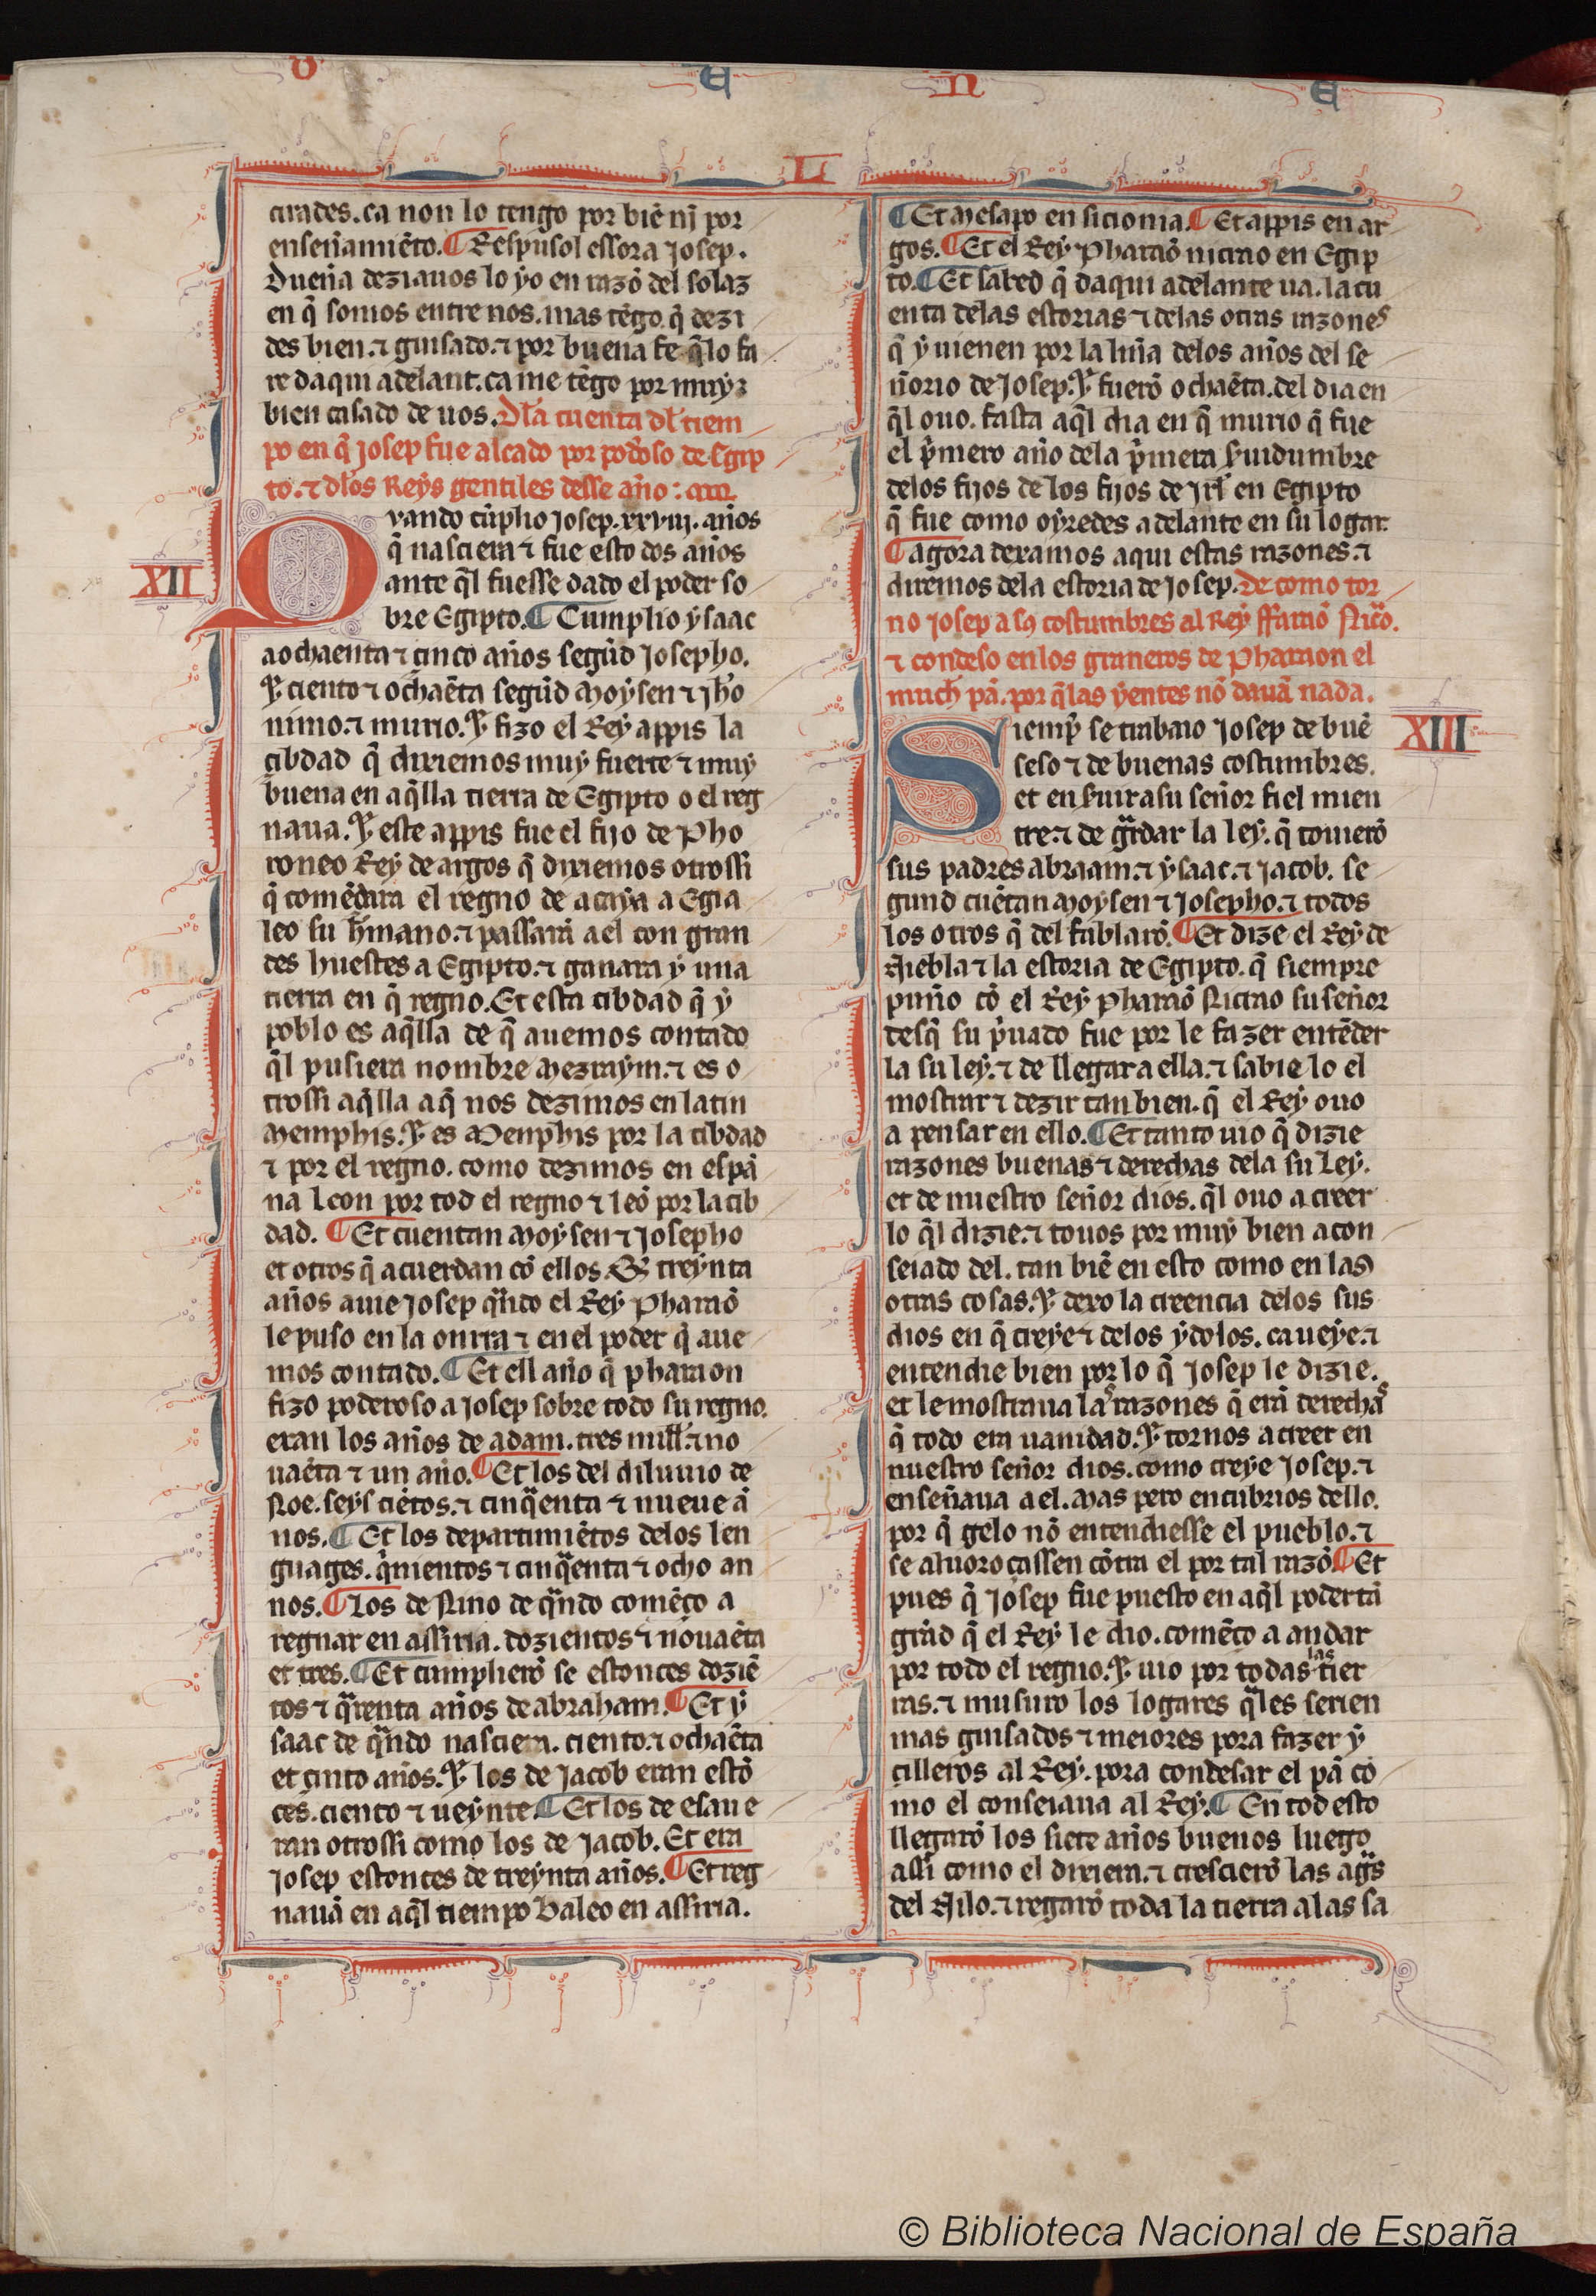 G E N E
LI
tirades. ca non lo tengo por biẽ nĩ por
enseñamiẽto. ¶ Respusol essora Josep.
Dueña dezianos lo yo en razõ del solaz
en q̃ somos entre nos. mas tẽgo. q̃ dezi
des bien. ⁊ guisado. ⁊ por buena fe q̃lo fa
re daqui adelant. ca me tẽgo por muy
bien casado de uos. Dl̃a cuenta dl̃ tiem
po en q̃ Josep fue alçado por pod̃oso de Egip
to. ⁊ dl̃os Reys gentiles desse año:
XII
Qvando cũplio Josep. xxviij. años
q̃ nasciera ⁊ fue esto dos años
ante q̃l fuesse dado el poder so
bre Egipto. ¶ Cumplio ysaac
a ochaenta ⁊ cinco años segũd Josepho.
⁊ ciento ⁊ ochaẽta segũd Moysen ⁊ Jh̃o
nimo. ⁊ murio. ⁊ fizo el Rey appis la
cibdad q̃ dixiemos muy fuerte ⁊ muy
buena en aq̃lla tierra de Egipto o el reg
naua. ⁊ este appis fue el fijo de Pho
roneo Rey de argos q̃ dixiemos otrossi
q̃ comẽdara el regno de acaya a Egia
leo su hr̃mano. ⁊ passara a el con gran
des huestes a Egipto. ⁊ ganara y una
tierra en q̃ regno. Et esta cibdad q̃ y
poblo es aq̃lla de q̃ auemos contado
q̃l pusiera nombre Mezraym. ⁊ es o
trossi aq̃lla a q̃ nos dezimos en latin
Memphis. ⁊ es Menphis por la cibdad
⁊ por el regno. como dezimos en espã
na leon por tod el regno ⁊ leõ por la cib
dad. ¶ Et cuentan Moysen ⁊ Josepho
et otros q̃ acuerdan cõ ellos. Q̃ treynta
años auie Josep q̃ndo el Rey Pharaõ
le puso en la onrra ⁊ en el poder q̃ aue
mos contado. ¶ Et ell año q̃ pharaon
fizo poderoso a Josep sobre todo su regno.
eran los años de adam. tres mill. ⁊ no
uaẽta ⁊ un año. ¶ Et los del diluuio de
Noe. seys ciẽtos. ⁊ cinq̃enta ⁊ nueue ã
nos. ¶ Et los departimiẽtos delos len
guages. q̃nientos ⁊ cinq̃enta ⁊ ocho an
nos. ¶ Los de Nino de q̃ndo comẽço a
regnar en assiria. dozientos ⁊ nouaẽta
et tres. ¶ Et cumplierõ se estonces doziẽ
tos ⁊ q̃renta años de abraham. ¶ Et y
saac de q̃ndo nasciera. ciento. ⁊ ochaẽta
et cinco años. ⁊ los de Jacob eran estõ
ces. ciento ⁊ ueynte. ¶ Et los de esau e
ran otrossi como los de Jacob. Et era
Josep estonces de treynta años. ¶ Et reg
nauã en aq̃l tiempo Baleo en assiria.
¶ Et Mesapo en sicionia. ¶ Et appis en ar
gos. ¶ Et el Rey Pharaõ nicrao en Egip
to. ¶ Et sabed q̃ daqui adelante ua. la cu
enta delas estorias ⁊ delas otras razones
q̃ y uienen por la liña delos años del se
ñorio de Josep. ⁊ fuerõ ochaẽta. del dia en
q̃l ouo. fasta aq̃l dia en q̃ murio q̃ fue
el p̃mero año dela p̃mera s̃uidumbre
delos fijos de los fijos de Jrl̃ en Egipto
q̃ fue como oyredes adelante en su logar.
¶ agora dexamos aqui estas razones. ⁊
diremos dela estoria de Josep. De como tor
no Josep a sꝯ costumbres al Rey ffaraõ Nicrao.
⁊ condeso en los graneros de Pharaon el
much pã. por q̃las yentes nõ dauã nada.
XIII
Siemp̃ se trabaio Josep de buẽ
seso ⁊ de buenas costumbres.
et en s̃uir a su señor fiel mien
tre. ⁊ de g̃rdar la ley. q̃ touierõ
sus padres abraam. ⁊ ysaac. ⁊ Jacob. se
gund cuẽtan Moysen ⁊ Josepho. ⁊ todos
los otros q̃ del fablarõ. ¶ Et dize el Rey de
Niebla ⁊ la estoria de Egipto. q̃ siempre
puño cõ el Rey Pharaõ Nicrao su señor
desq̃ su p̃uado fue por le fazer entẽder
la su ley. ⁊ de llegar a ella. ⁊ sabie lo el
mostrar ⁊ dezir tan bien. q̃ el Rey ouo
a pensar en ello. ¶ Et tanto uio q̃ dizie
razones buenas ⁊ derechas dela su Ley.
et de nuestro señor dios. q̃l ouo a creer
lo q̃l dizie. ⁊ touos por muy bien acon
seiado del. tan biẽ en esto como en las
otras cosas. ⁊ dexo la creencia delos sus
dios en q̃ creye ⁊ delos ydolos. ca ueye. ⁊
entendie bien por lo q̃ Josep le dizie.
et le mostraua las razones q̃ erã derechas
q̃ todo era uanidad. ⁊ tornos a creer en
nuestro señor dios. como creye Josep. ⁊
enseñaua a el. Mas pero encubrios dello.
por q̃ gelo nõ entendiesse el pueblo. ⁊
se aluoroçassen cõtra el por tal razõ. ¶ Et
pues q̃ Josep fue puesto en aq̃l poder tã
grãd q̃ el Rey le dio. comẽço a andar
por todo el regno. ⁊ uio por todas las tier
ras. ⁊ mesuro los logares q̃les serien
mas guisados ⁊ meiores pora fazer y
cilleros al Rey. pora condesar el pã co
mo el conseiaua al Rey. ¶ En tod esto
llegarõ los siete años buenos luego
assi como el dixiera. ⁊ crescierõ las ag̃s
del Nilo. ⁊ regarõ toda la tierra a las sa
© Biblioteca Nacional de España